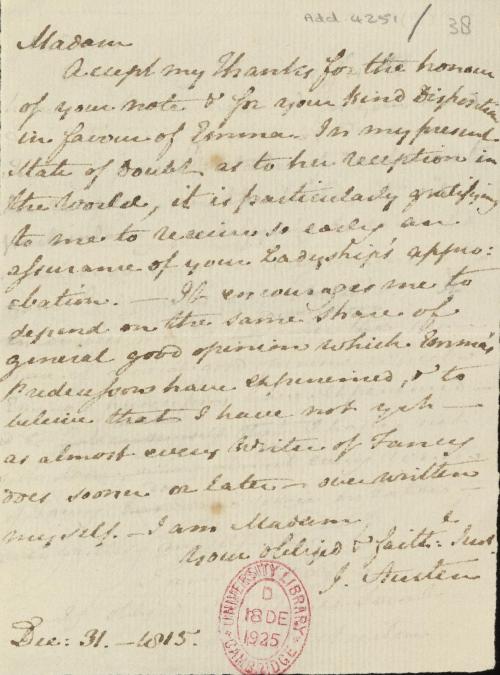 Add. 4251 / 38
Madam
Accept my Thanks for the honour
of your note & for your kind Disposition
in favour of Emma. In my present
State of Doubt as to her reception in
the World, it is particularly gratifying
to me to receive so early an
assurance of your Ladyship's appro:
:bation. — It encourages me to
depend on the same share of
general good opinion which Emma's
Predecessors have experienced, & to
believe that I have not yet —
as almost every Writer of Fancy
does sooner or later — overwritten
myself. — I am Madam
Your obliged & faith:
J. Austen
Dec: 31. — 1815.
UNIVERSITY LIBRARY
D
18 DE
1925
CAMBRIDGE